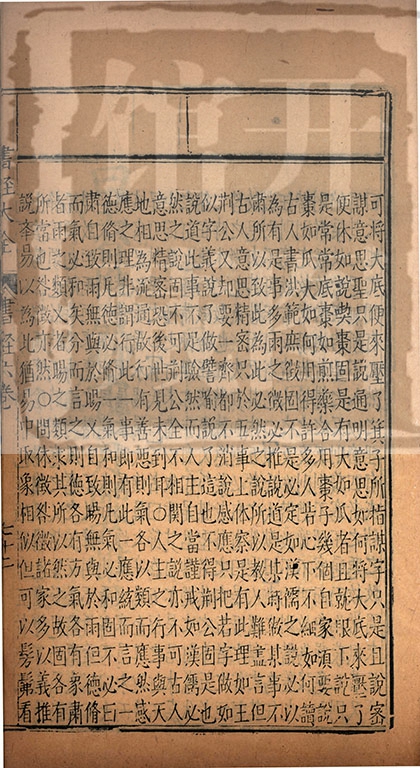 可將大底便來壓了箕子所指謀字只是且說密
謀意思聖只是說通明意思如何將大底來壓了
便休如說喫棗固是有大如瓜者且就眼下說只
是常常底棗如煎藥合用棗子幾個自家須要說
棗如瓜大如何用得許多人若心下不細如何讀
古人書洪範庶徵固不是必定如漢儒之說必以
為有是事多雨之徵必推說道是某時做某事不
肅所以致此為此必然之說所以教人難盡信但
古人意思精密只於五事上體察是有此理如王
荆公又却要一齊都不消說感應只把若字做如
似字義說做譬喻說了這也不得荆公固是也
說道此事不足驗然而人主自當謹戒如漢儒必
然之說固不可荆公全不相關之說亦不可古人
意思精密恐後世見未到耳○人主之行事與天
地相為流通故行有善惡則氣各以類而應然感
應之理非謂行此一事即有此一應統而言之一
德脩則凡德必脩一氣和則凡氣必和固不必曰
肅自致雨無與於暘乂自致暘無與於雨但德脩
而氣必和矣分而言之則德各有方氣各有象肅
者雨之類乂者暘之類求其所以然之故固各有
所當也咎徵亦然○問休徵咎徵諸家多以義推
說以為此猶易中取象相似但可以髣髴看
書經大全
書經六卷
七十二